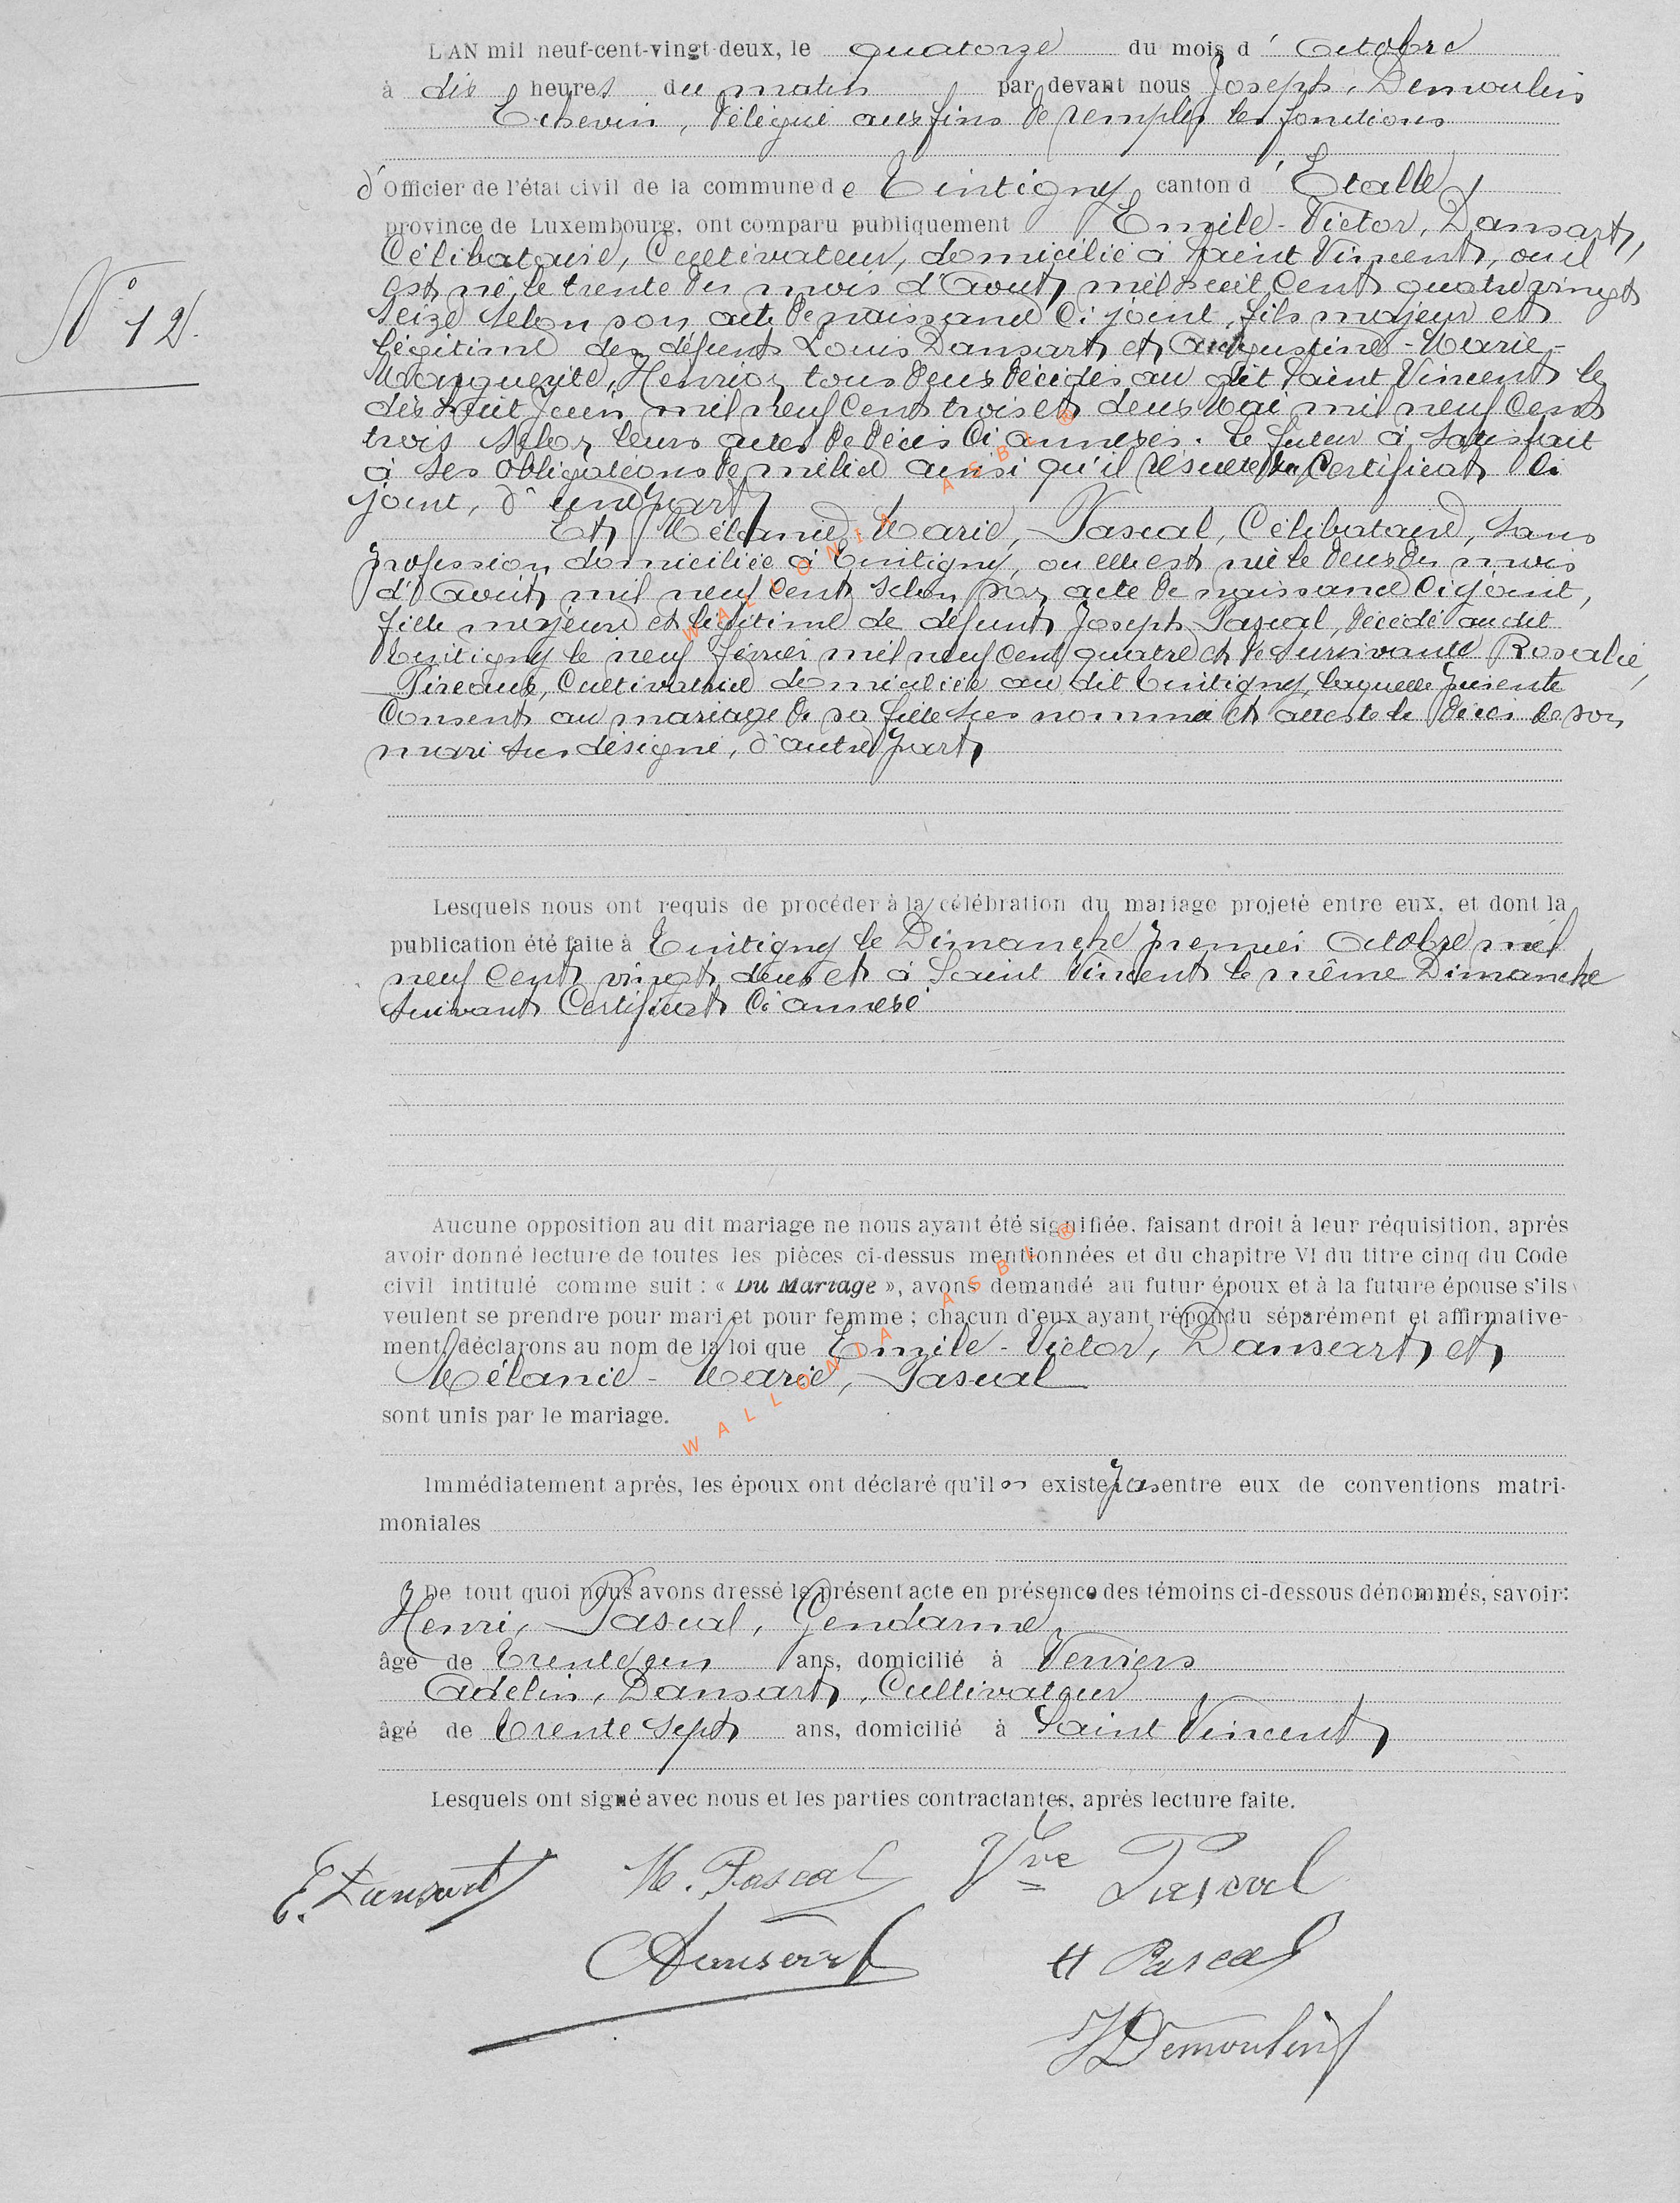 L'AN mil neuf-cent-vingt-deux, le quatorze du mois d' Octobre
à dix heures du matin par devant nous Joseph, Demoulin
Echevin, délégué aux fins de remplir les fonctions
d'Officier de l'état civil de la commune de Tintigny, canton d' Etalle,
province de Luxembourg, ont comparu publiquement Emile-Victor, Dansart,
Célibataire, Cultivateur, domicilié à Saint Vincent, ou il
N° 12.
est né le trente du mois d'Aout, mil huit Cent quatre vingt
Seize selon son acte de naissance Ci joint, fils majeur et
légitime des défunts Louis Dansart et Augustine-Marie-
Marguerite, Henrion tous deux décédés au dit Saint Vincent le
dix huit Juin mil neuf Cent trois et deux Mai mil neuf Cent
trois selon leurs actes de décès Ci annexés. Le futur à satisfait
à ses obligations de milice ainsi qu'il résulte du Certificat Ci
joint, d'une part,
Et Mélanie-Marie, Pascal, Célibataire, sans
profession domiciliée à Tintigny, ou elle est née le deux du mois
d'Aout mil neuf Cent selon son acte de naissance Ci joint,
fille majeure et légitime de défunt Joseph Pascal, décédé au dit
Tintigny le neuf février mil neuf cent quatre et de survivante Rosalie,
Pireaux, Cultivatrice domiciliée au dit Tintigny, laquelle présente
Consent au mariage de sa fille sus nommé et atteste le décès de son
mari sus désigné, d'autre part,
Lesquels nous ont requis de procéder à la célébration du mariage projeté entre eux, et dont la
publication été faite à Tintigny le Dimanche premier Octobre mil
neuf Cent vingt deux et à Saint Vincent le même Dimanche
suivant Certificat Ci annexé
Aucune opposition au dit mariage ne nous ayant été signifiée, faisant droit à leur réquisition, après
avoir donné lecture de toutes les pièces ci-dessus mentionnées et du chapitre VI du titre cinq du Code
civil intitulé comme suit : « Du Mariage », avons demandé au futur époux et à la future épouse s'ils
veulent se prendre pour mari et pour femme ; chacun d'eux ayant répondu séparément et affirmative-
ment, déclarons au nom de la loi que Emile-Victor, Dansart, et
Mélanie-Marie, Pascal
sont unis par le mariage.
Immédiatement après, les époux ont déclaré qu'il n existe pas entre eux de conventions matri-
moniales
De tout quoi nous avons dressé le présent acte en présence des témoins ci-dessous dénommés, savoir:
Henri, Pascal, Gendarme,
âgé de trente un ans, domicilié à Verviers
Adelin, Dansart, Cultivateur
âgé de trente sept ans, domicilié à Saint Vincent,
Lesquels ont signé avec nous et les parties contractantes, après lecture faite.
E. Dansart M. Pascal Vve Pascal
A Dansart H Pascal
J Demoulin
WALLONIA ASBL ®
WALLONIA ASBL ®